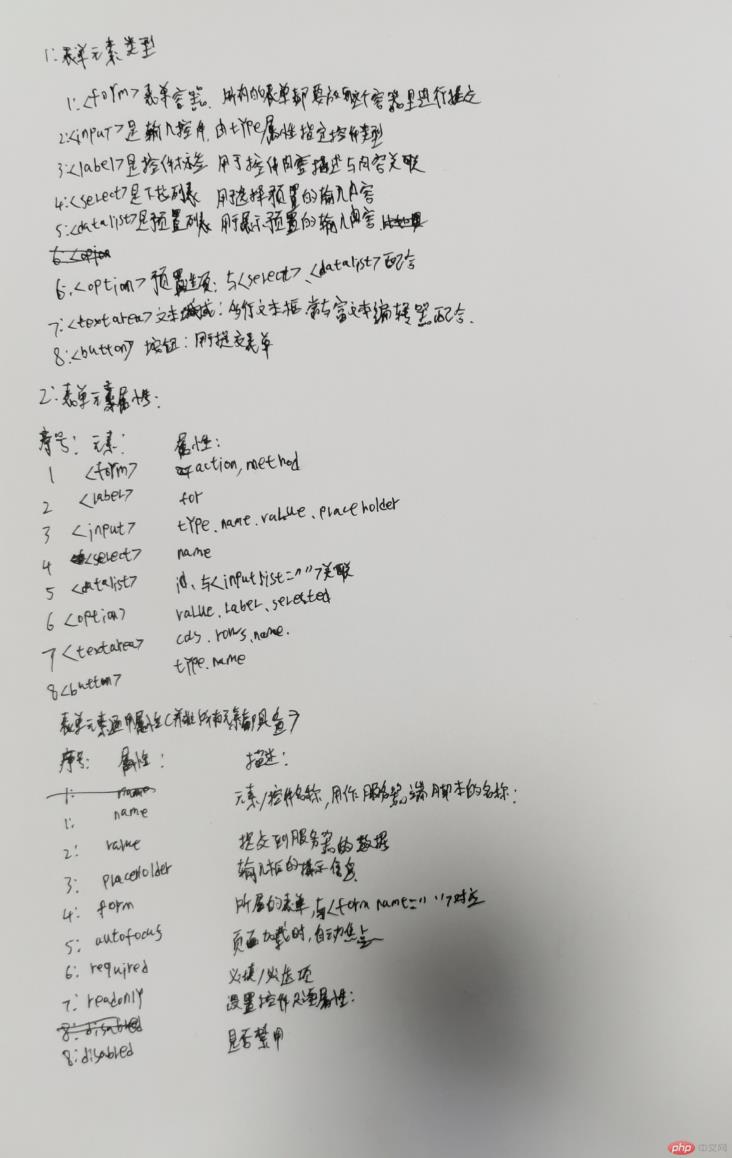 1:表单元素类型
1:<form>表单容器. 所有的表单都要放到这个容器里进行提交
2:<input>是输入控件,由type属性指定控件类型
3:<label>是控件标签 用于控件内容描述与内容关联
4:<select>是下拉列表 用于选择预置的输入内容
5:<datalist>是预置列表 用于展示预置的输入内容
6:<option
6:<option>预置选项:与<select>、<datalist>配合
7:<textarea>文本域:多行文本框 常与富文本编辑器配合.
8:<button> 按钮:用于提交表单
2:表单元素属性:
序号: 元素: 属性:
1 <form> action,method
2 <label> for
3 <input> type.name.value、placeholder
4 <select> name
5 <datalist> id、与<input list="">关联
6 <option> value.label、selested
7 <textarea> cols.rows.name.
8 <button> type.name
表单元素通用属性(并非所有元素都具备)
序号: 属性: 描述:
1: name
1: name 元素/控件名称,用作服务器端脚本的名称:
2: value 提交到服务器的数据
3: placeholder 输入框的提示信息
4: form 所属的表单,与<form name="">对应
5: autofocus 页面加载时,自动焦点
6: required 必填/必选项
7: readonly 设置控件只读属性:
8: disabled
8:disabled 是否禁用
php 中文网